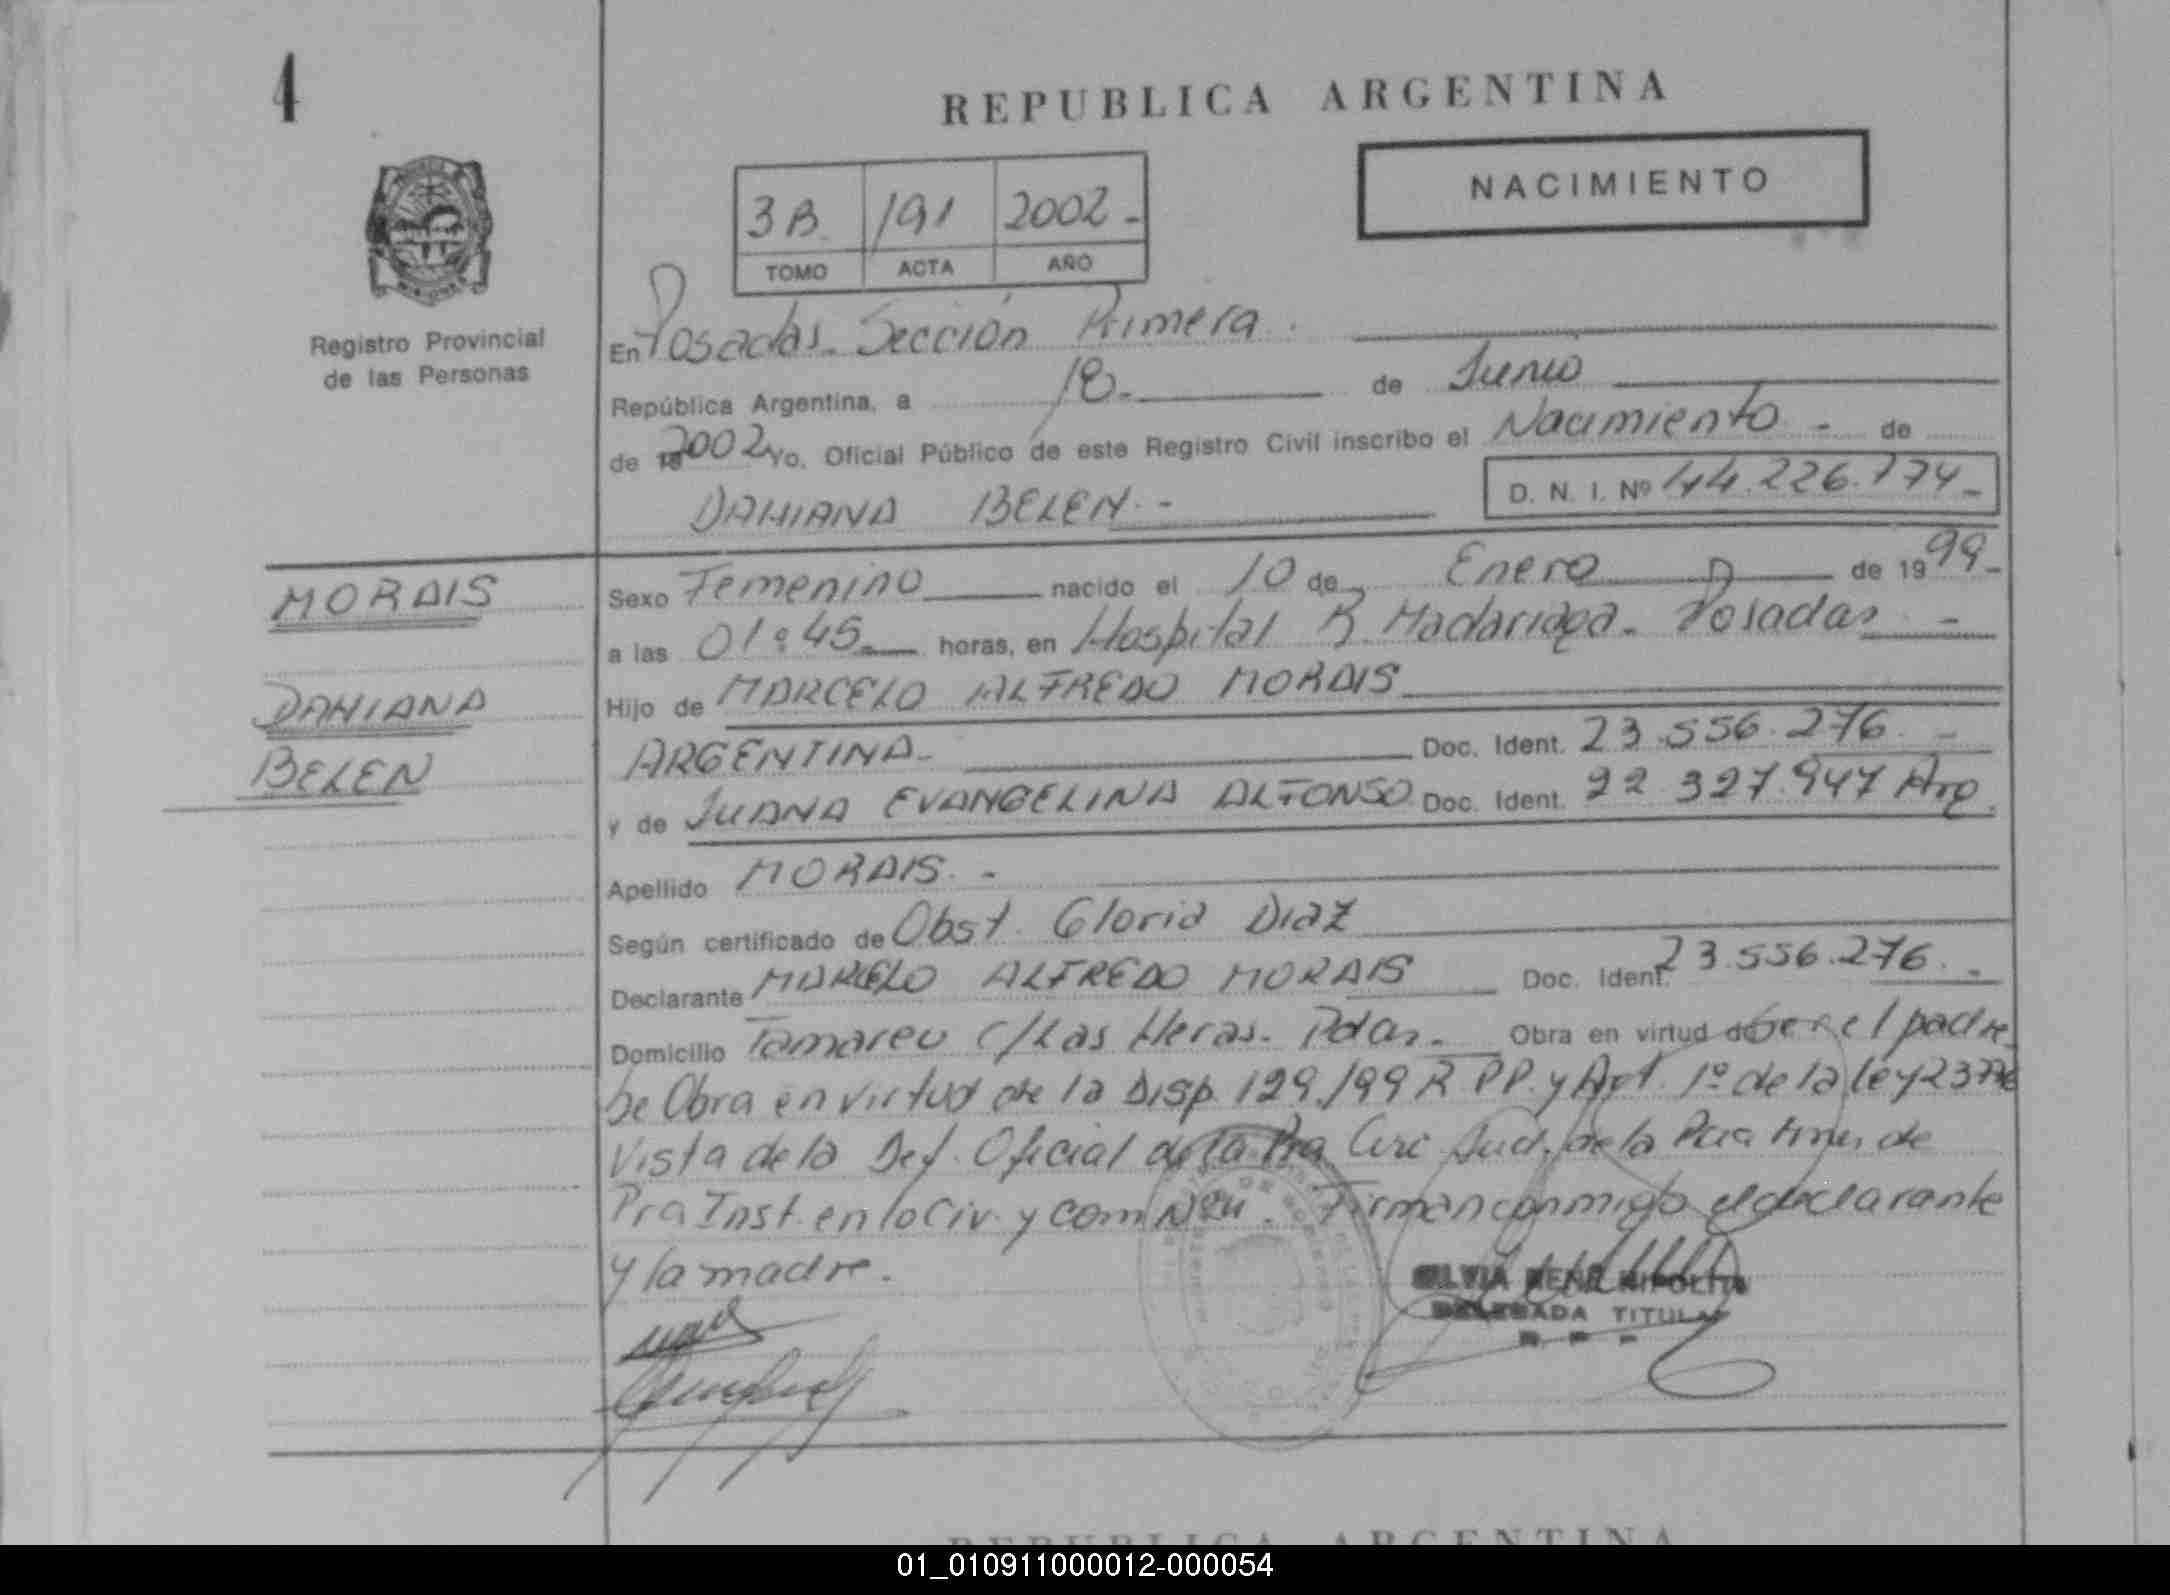 4
REPUBLICA ARGENTINA
NACIMIENTO
3B 191 2002-
TOMO ACTA AÑO
Registro Provincial
de las Personas
En Posadas. Sección Primera.
República Argentina, a 18. de Junio
de 2002 Yo, Oficial Público de este Registro Civil inscribo el Nacimiento - de
DAMIANA BELEN.-
D. N. I. Nº 44.226.774-
MORAIS
DAMIANA
BELEN
Sexo Femenino nacido el 10 de Enero de 1999-
a las 01:45 horas, en Hospital R. Madariaga. Posadas -
Hijo de MARCELO ALFREDO MORAIS
ARGENTINA- Doc. Ident. 23.556.276. -
y de JUANA EVANGELINA ALFONSO Doc. Ident. 22.327.947 Arg.
Apellido MORAIS. -
Según certificado de Obst. Gloria Diaz
Declarante MARCELO ALFREDO MORAIS Doc. Ident. 23.556.276. -
Domicilio c/Las Heras. Pdas. Obra en virtud de ser el padre
Se Obra en virtud de la Disp. 129/99 R PP. y Art. 1º de la ley
Vista de la Def. Oficial de la Circ Jud. de la de
Pra Inst. en lo Civ. y Com Firman conmigo el declarante
y la madre.
SILVIA RENE HIPOLITO
DELEGADA TITULAR
REPUBLICA ARGENTINA
01_010911000012-000054